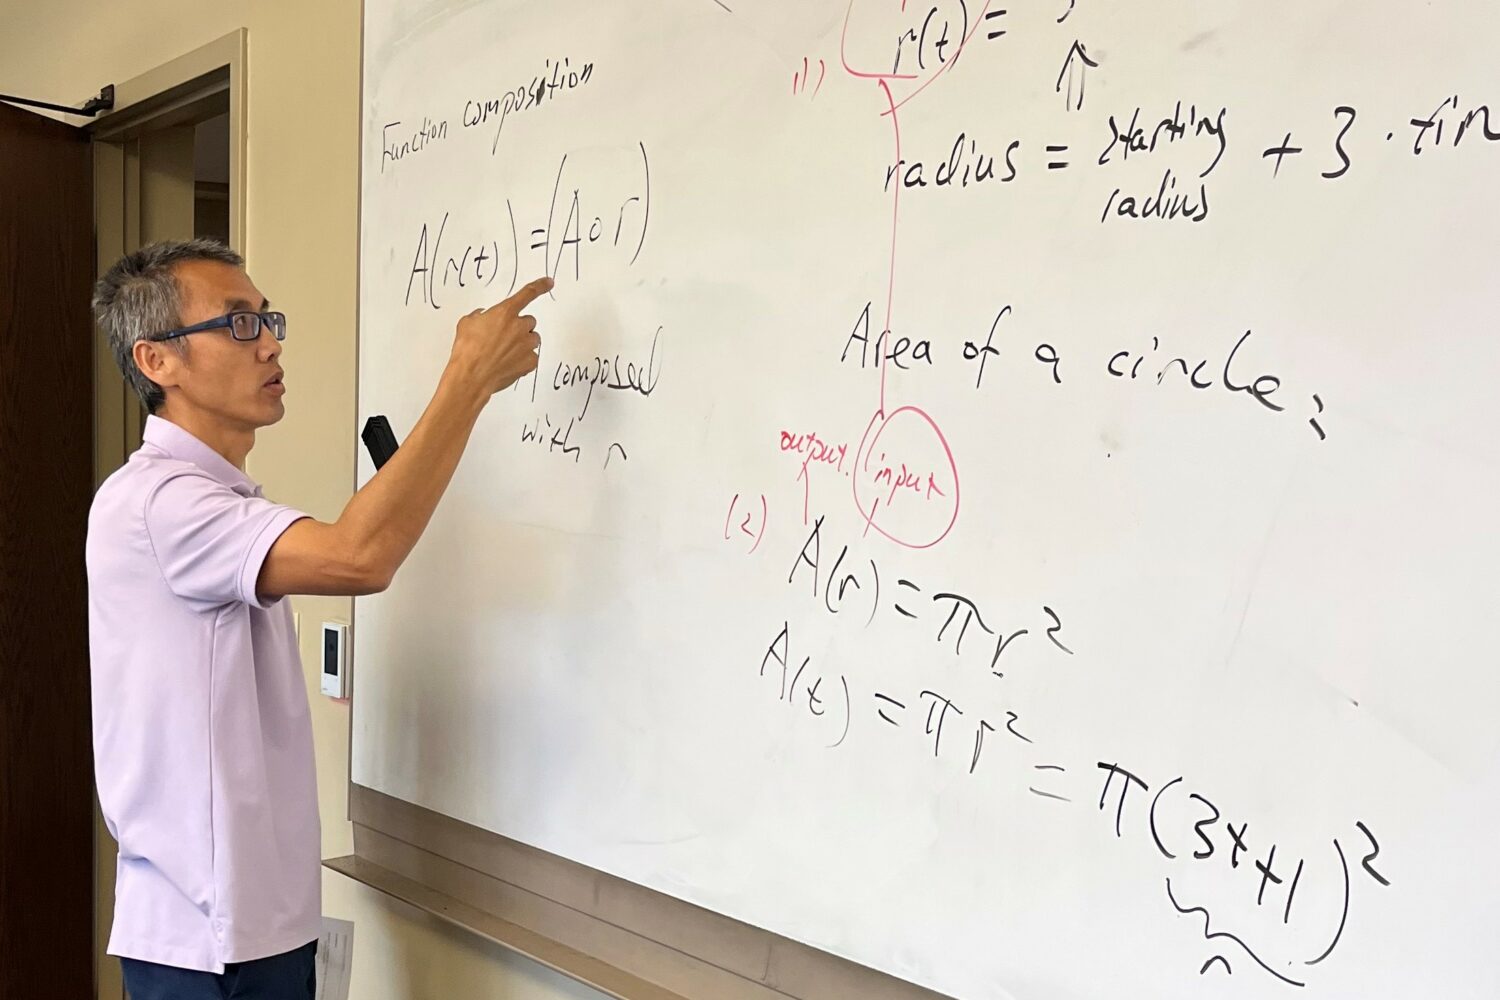 Function composition
A(r(t)) = (A∘r)
A composed
with r
(1)
r(t) =
radius = starting + 3 · tim
radius
Area of a circle:
output. input
(2)
A(r) = πr²
A(t) = πr² = π(3t+1)²
r